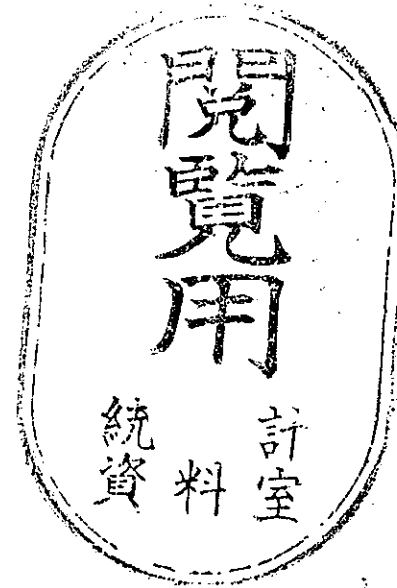 閲覧用
統計
資料室